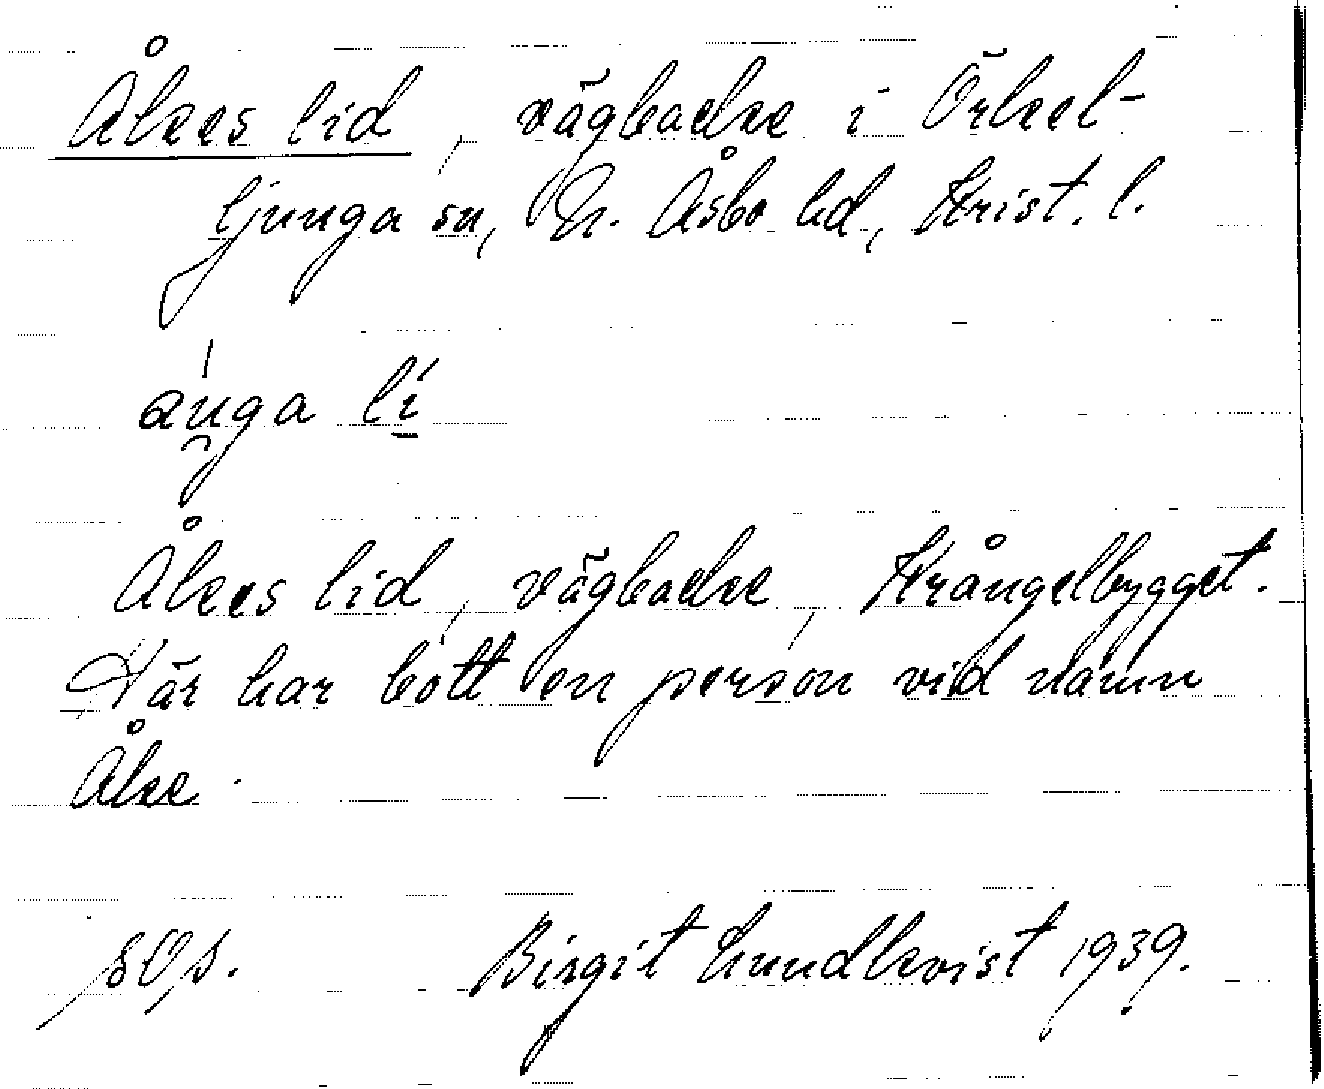 Åkes lid, vägbacke i Örkel-
ljunga sn, N. Åsbo hd, Krist. l.
lí
Åkes lid, vägbacke, Krångelbygget.
Där har bott en person vid namn
Åke.
Birgit Lundkvist 1939.